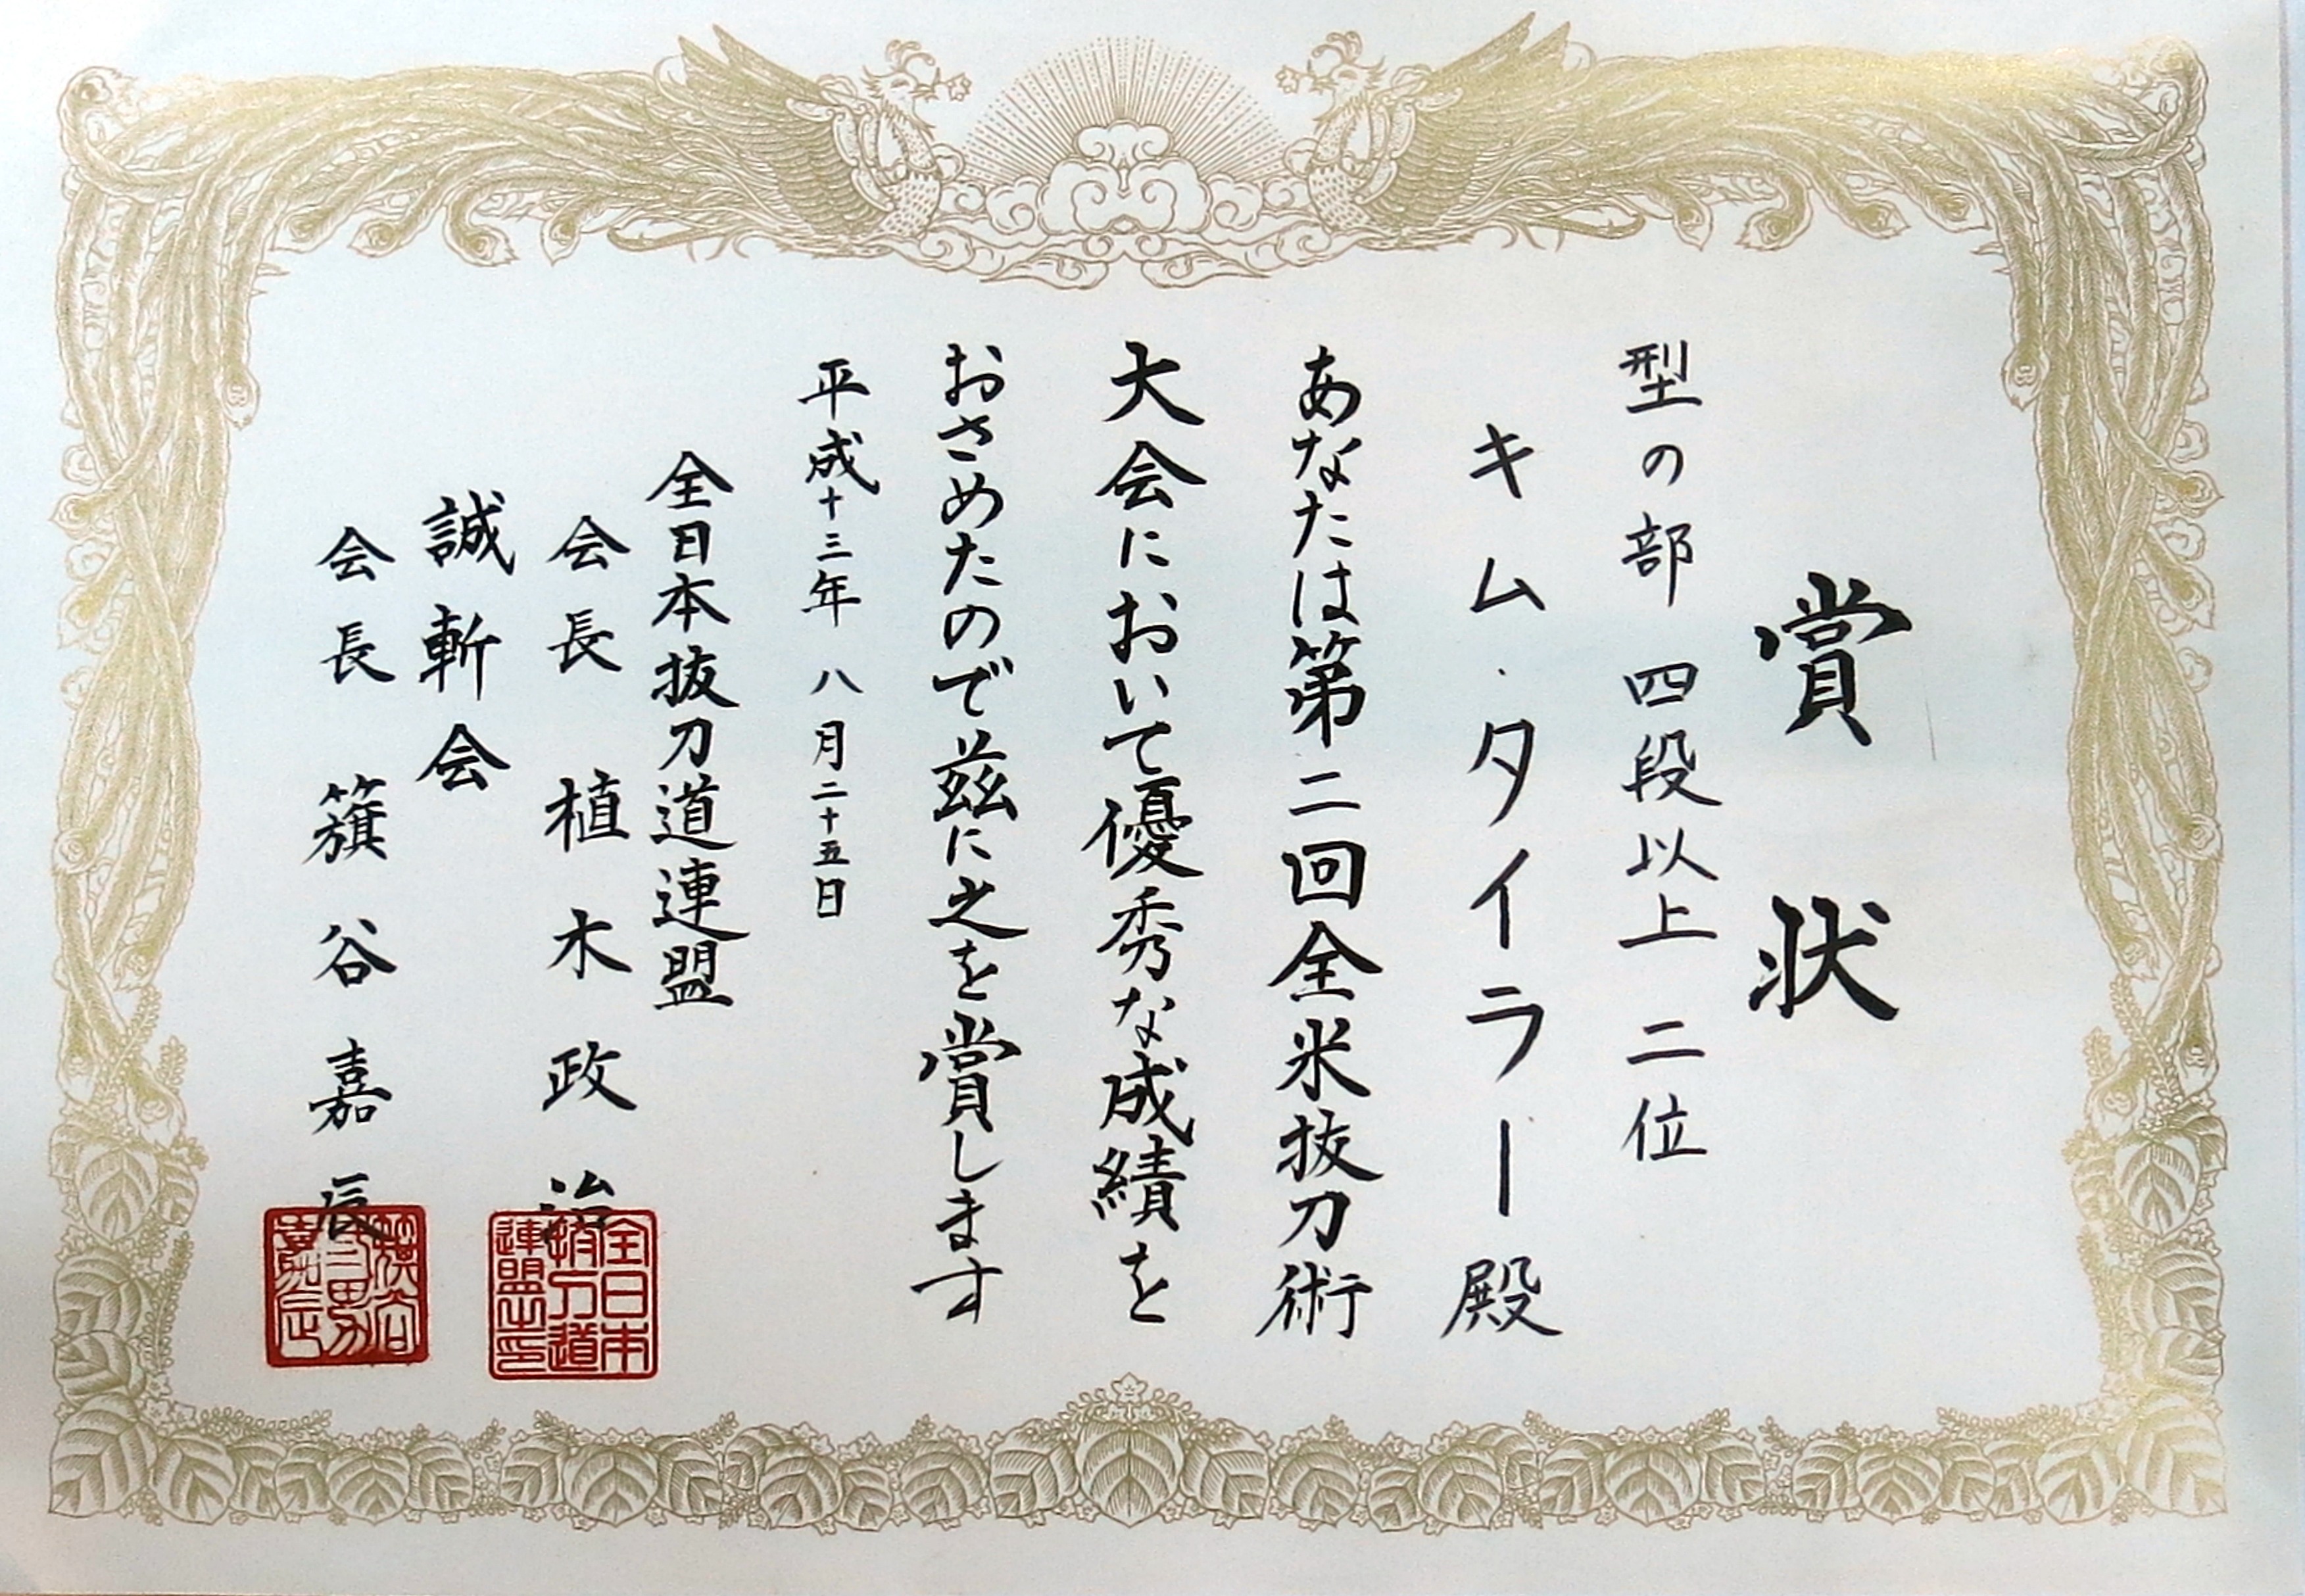 賞状
型の部 四段以上 二位
キム・タイラー殿
あなたは第二回全米抜刀術
大会において優秀な成績を
おさめたので茲に之を賞します
平成十三年 八月二十五日
全日本抜刀道連盟
会長 植木政治
誠斬会
会長 籏谷嘉辰
全日本
抜刀道
連盟印